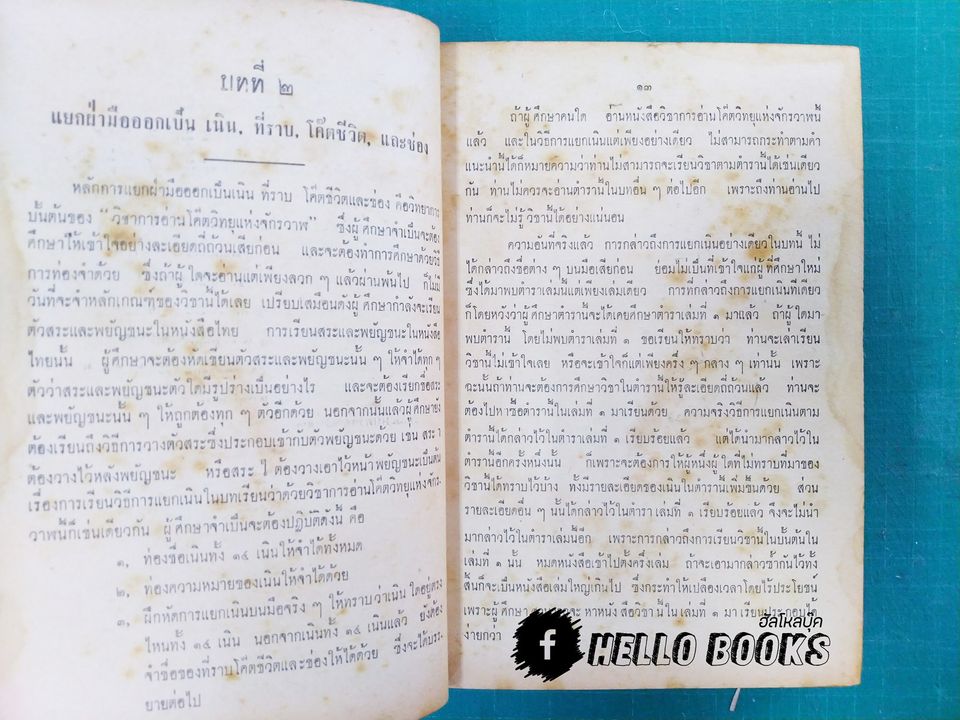 บทที่ ๒
แยกฝ่ามือออกเป็น เนิน, ที่ราบ, โค๊ตชีวิต, และช่อง
หลักการแยกฝ่ามือออกเป็นเนิน ที่ราบ โค๊ตชีวิตและช่อง คือวิทยาการ
ขั้นต้นของ “วิชาการอ่านโค๊ตวิทยุแห่งจักรวาพ” ซึ่งผู้ศึกษาจำเป็นจะต้อง
ศึกษาให้เข้าใจอย่างละเอียดถี่ถ้วนเสียก่อน และจะต้องทำการศึกษาด้วยวิธี
การท่องจำด้วย ซึ่งถ้าผู้ใดจะอ่านแต่เพียงลวก ๆ แล้วผ่านพ้นไป ก็ไม่มี
วันที่จะจำหลักเกณฑ์ของวิชานี้ได้เลย เปรียบเสมือนดังผู้ศึกษากำลังจะเรียน
ตัวสระและพยัญชนะในหนังสือไทย การเรียนสระและพยัญชนะในหนังสือ
ไทยนั้น ผู้ศึกษาจะต้องหัดเขียนตัวสระและพยัญชนะนั้น ๆ ให้จำได้ทุก ๆ
ตัวว่าสระและพยัญชนะตัวใดมีรูปร่างเป็นอย่างไร และจะต้องเรียกชื่อสระ
และพยัญชนะนั้น ๆ ให้ถูกต้องทุก ๆ ตัวอีกด้วย นอกจากนั้นแล้วผู้ศึกษายัง
ต้องเรียนถึงวิธีการวางตัวสระซึ่งประกอบเข้ากับตัวพยัญชนะด้วย เช่น สระ า
ต้องวางไว้หลังพยัญชนะ หรือสระ ไ ต้องวางเอาไว้หน้าพยัญชนะเป็นต้น
เรื่องการเรียนวิธีการแยกเนินในบทเรียนว่าด้วยวิชาการอ่านโค๊ตวิทยุแห่งจักร-
วาพนี้ก็เช่นเดียวกัน ผู้ศึกษาจำเป็นจะต้องปฏิบัติดังนี้ คือ
๑. ท่องชื่อเนินทั้ง ๑๔ เนินให้จำได้ทั้งหมด
๒. ท่องความหมายของเนินให้จำได้ด้วย
๓. ฝึกหัดการแยกเนินบนมือจริง ๆ ให้ทราบว่าเนินใดอยู่ตรง
ไหนทั้ง ๑๔ เนิน นอกจากเนินทั้ง ๑๔ เนินแล้ว ยังต้อง
จำชื่อของที่ราบโค๊ตชีวิตและช่องให้ได้ด้วย ซึ่งจะได้บรร-
ยายต่อไป
๑๓
ถ้าผู้ศึกษาคนใด อ่านหนังสือวิชาการอ่านโค๊ตวิทยุแห่งจักรวาพนี้
แล้ว และในวิธีการแยกเนินแต่เพียงอย่างเดียว ไม่สามารถกระทำตามคำ
แนะนำนี้ได้ก็หมายความว่าท่านไม่สามารถจะเรียนวิชาตามตำรานี้ได้เช่นเดียว
กัน ท่านไม่ควรจะอ่านตำรานี้ในบทอื่น ๆ ต่อไปอีก เพราะถึงท่านอ่านไป
ท่านก็จะไม่รู้วิชานี้ได้อย่างแน่นอน
ความอันที่จริงแล้ว การกล่าวถึงการแยกเนินอย่างเดียวในบทนี้ ไม่
ได้กล่าวถึงชื่อต่าง ๆ บนมือเสียก่อน ย่อมไม่เป็นที่เข้าใจแก่ผู้ที่ศึกษาใหม่
ซึ่งได้มาพบตำราเล่มนี้แต่เพียงเล่มเดียว การที่กล่าวถึงการแยกเนินทีเดียว
ก็โดยหวังว่าผู้ศึกษาตำรานี้จะได้เคยศึกษาตำราเล่มที่ ๑ มาแล้ว ถ้าผู้ใดมา
พบตำรานี้ โดยไม่พบตำราเล่มที่ ๑ ขอเรียนให้ทราบว่า ท่านจะเล่าเรียน
วิชานี้ไม่เข้าใจเลย หรือจะเข้าใจก็แต่เพียงครึ่ง ๆ กลาง ๆ เท่านั้น เพราะ
ฉะนั้นถ้าท่านจะต้องการศึกษาวิชาในตำรานี้ให้รู้ละเอียดถี่ถ้วนแล้ว ท่านจะ
ต้องไปหาซื้อตำรานี้ในเล่มที่ ๑ มาเรียนด้วย ความจริงวิธีการแยกเนินตาม
ตำรานี้ได้กล่าวไว้ในตำราเล่มที่ ๑ เรียบร้อยแล้ว แต่ได้นำมากล่าวไว้ใน
ตำรานี้อีกครั้งหนึ่งนั้น ก็เพราะจะต้องการให้ผู้หนึ่งผู้ใดที่ไม่ทราบที่มาของ
วิชานี้ได้ทราบไว้บ้าง ทั้งมีรายละเอียดของเนินในตำรานี้เพิ่มขึ้นด้วย ส่วน
รายละเอียดอื่น ๆ นั้นได้กล่าวไว้ในตำราเล่มที่ ๑ เรียบร้อยแล้ว จึงจะไม่นำ
มากล่าวไว้ในตำราเล่มนี้อีก เพราะการกล่าวถึงการเรียนวิชานี้ในขั้นต้นใน
เล่มที่ ๑ นั้น หมดหนังสือเข้าไปตั้งครึ่งเล่ม ถ้าจะเอามากล่าวซ้ำกันไว้ทั้ง
สิ้นก็จะเป็นหนังสือเล่มใหญ่เกินไป ซึ่งกระทำให้เปลืองเวลาโดยไร้ประโยชน์
เพราะผู้ศึกษา จะหาหนังสือวิชานี้ในเล่มที่ ๑ มาเรียนประกอบได้
ง่ายกว่า
ฮัลโหลบุ๊ค
f HELLO BOOKS